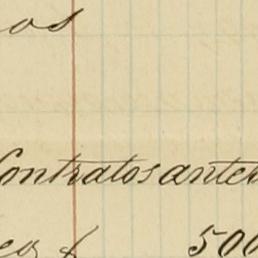 os
Contratos anter
500